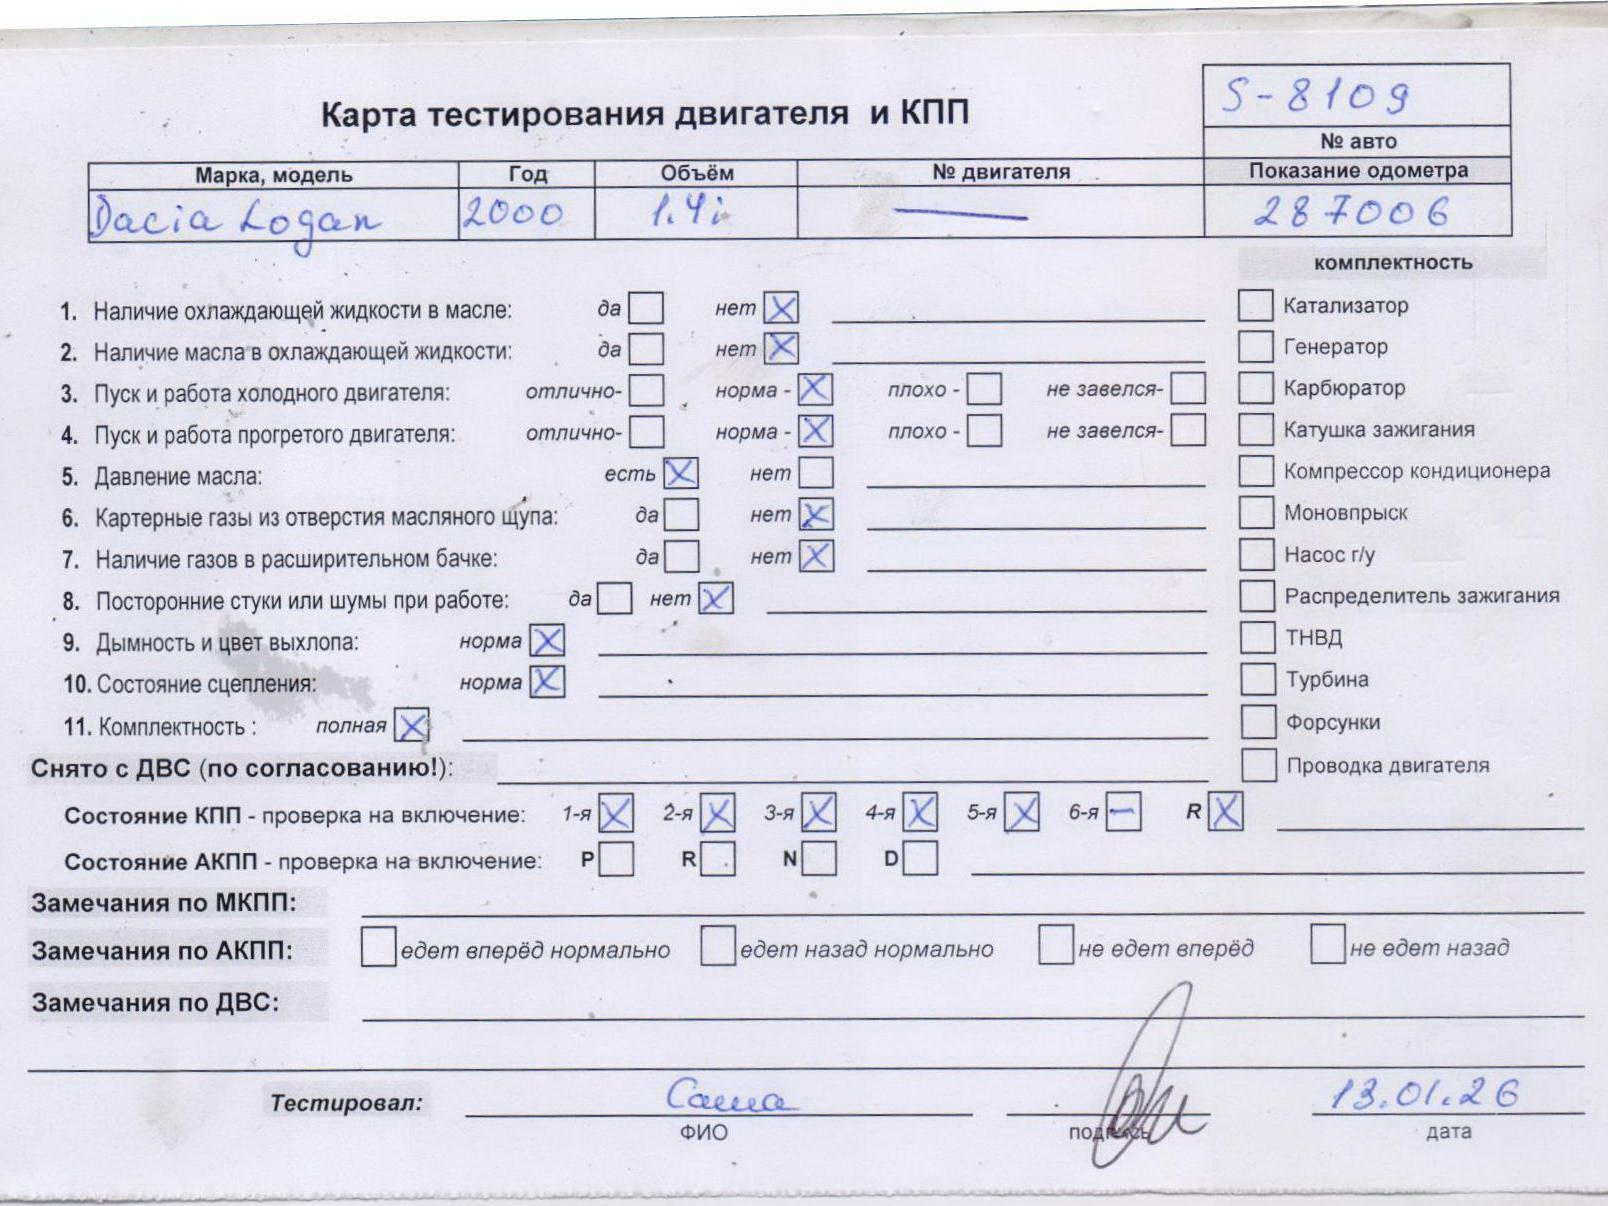 S-8109
Карта тестирования двигателя и КПП
№ авто
Марка, модель Год Объём № двигателя Показание одометра
Dacia Logan 2000 1.4i — 287006
комплектность
1. Наличие охлаждающей жидкости в масле: да нет X Катализатор
2. Наличие масла в охлаждающей жидкости: да нет X Генератор
3. Пуск и работа холодного двигателя: отлично- норма - X плохо - не завелся- Карбюратор
4. Пуск и работа прогретого двигателя: отлично- норма - X плохо - не завелся- Катушка зажигания
5. Давление масла: есть X нет Компрессор кондиционера
6. Картерные газы из отверстия масляного щупа: да нет X Моновпрыск
7. Наличие газов в расширительном бачке: да нет X Насос г/у
8. Посторонние стуки или шумы при работе: да нет X Распределитель зажигания
9. Дымность и цвет выхлопа: норма X ТНВД
10. Состояние сцепления: норма X Турбина
11. Комплектность : полная X Форсунки
Снято с ДВС (по согласованию!): Проводка двигателя
Состояние КПП - проверка на включение: 1-я X 2-я X 3-я X 4-я X 5-я X 6-я — R X
Состояние АКПП - проверка на включение: P R N D
Замечания по МКПП:
Замечания по АКПП: едет вперёд нормально едет назад нормально не едет вперёд не едет назад
Замечания по ДВС:
Тестировал: Саша 13.01.26
ФИО подпись дата